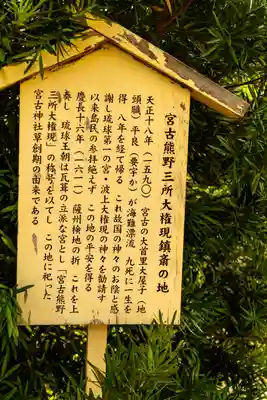 宮古熊野三所大権現鎮斎の地
天正十八年(一五九〇) 宮古の大首里大屋子(地
頭職)平良(豊字か)が海難漂流 九死に一生を
得 八年を経て帰る これ故国の神々のお陰と感
謝し琉球第一の宮・波上大権現の神々を勧請す
以来島民の参拝絶えず この地の平安を得る
慶長十六年(一六一一) 薩州検地の折 これを上
奏し 琉球王朝は瓦葺の立派な宮とし「宮古熊野
三所大権現」の称号を以てし この地に祀った
宮古神社草創期の由来である